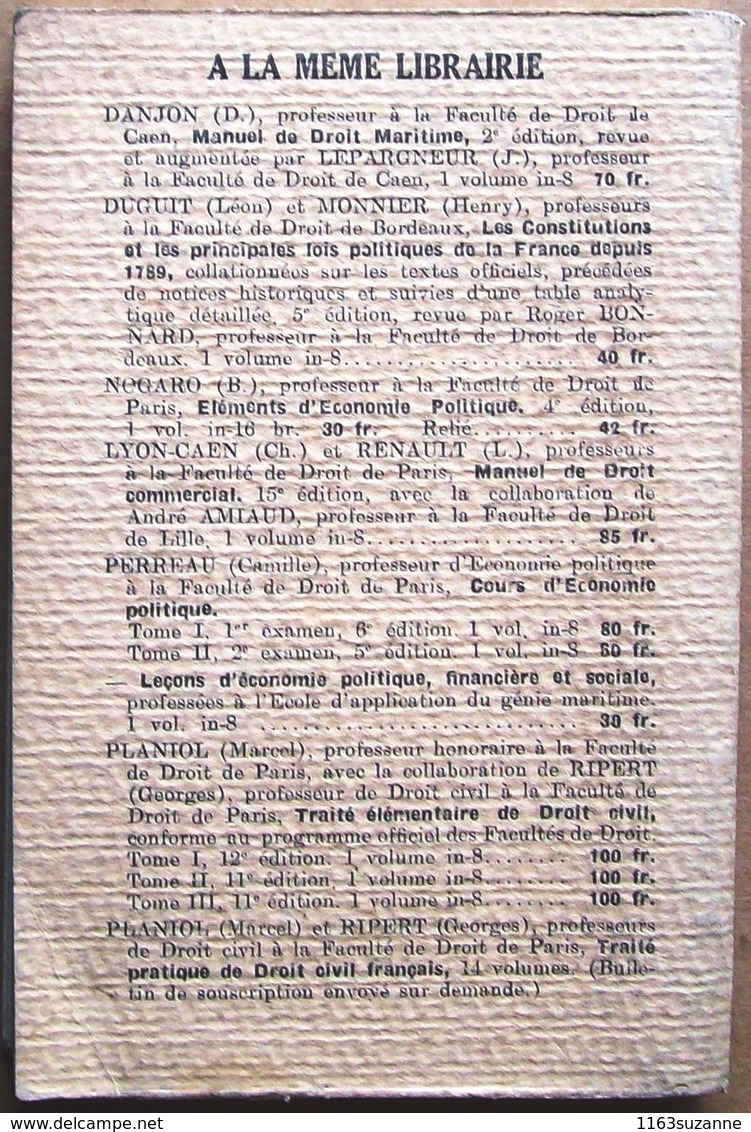 A LA MEME LIBRAIRIE
DANJON (D.), professeur à la Faculté de Droit de
Caen, Manuel de Droit Maritime, 2e édition, revue
et augmentée par LEPARGNEUR (J.), professeur
à la Faculté de Droit de Caen, 1 volume in-8 70 fr.
DUGUIT (Léon) et MONNIER (Henry), professeurs
à la Faculté de Droit de Bordeaux, Les Constitutions
et les principales lois politiques de la France depuis
1789, collationnées sur les textes officiels, précédées
de notices historiques et suivies d'une table analy-
tique détaillée. 5e édition, revue par Roger BON-
NARD, professeur à la Faculté de Droit de Bor-
deaux. 1 volume in-8....................... 40 fr.
NOGARO (B.), professeur à la Faculté de Droit de
Paris, Eléments d'Economie Politique. 4e édition,
1 vol. in-16 br. 30 fr. Relié.......... 42 fr.
LYON-CAEN (Ch.) et RENAULT (L.), professeurs
à la Faculté de Droit de Paris, Manuel de Droit
commercial. 15e édition, avec la collaboration de
André AMIAUD, professeur à la Faculté de Droit
de Lille, 1 volume in-8....................... 85 fr.
PERREAU (Camille), professeur d'Economie politique
à la Faculté de Droit de Paris, Cours d'Economie
politique.
Tome I, 1er examen, 6e édition. 1 vol. in-8 80 fr.
Tome II, 2e examen, 5e édition. 1 vol. in-8 50 fr.
— Leçons d'économie politique, financière et sociale,
professées à l'Ecole d'application du génie maritime.
1 vol. in-8 ................................ 30 fr.
PLANIOL (Marcel), professeur honoraire à la Faculté
de Droit de Paris, avec la collaboration de RIPERT
(Georges), professeur de Droit civil à la Faculté de
Droit de Paris, Traité élémentaire de Droit civil,
conforme au programme officiel des Facultés de Droit.
Tome I, 12e édition. 1 volume in-8........ 100 fr.
Tome II, 11e édition, 1 volume in-8........ 100 fr.
Tome III, 11e édition. 1 volume in-8........ 100 fr.
PLANIOL (Marcel) et RIPERT (Georges), professeurs
de Droit civil à la Faculté de Droit de Paris, Traité
pratique de Droit civil français, 14 volumes. (Bulle-
tin de souscription envoyé sur demande.)
DELCAMPE.NET
1163suzanne